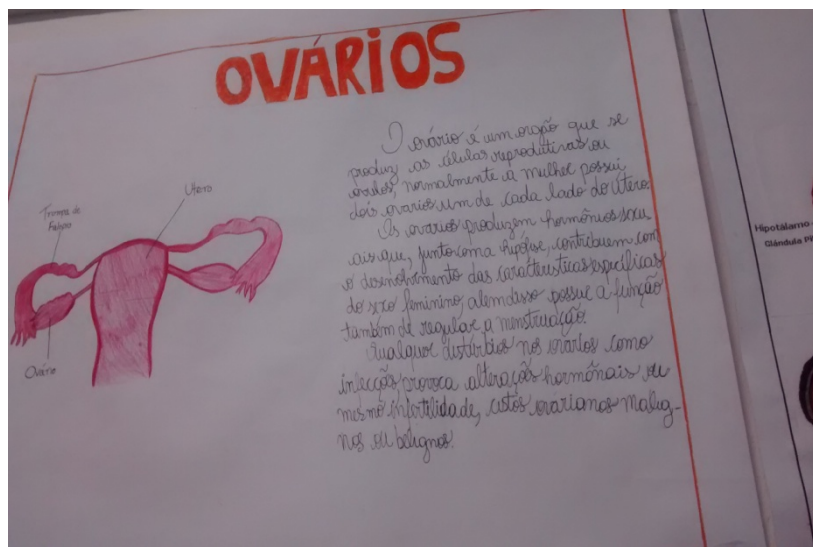 OVÁRIOS
O ovário é um orgão que se
produz as células reprodutivas ou
ovulos, normalmente a mulher possui
dois ovarios um de cada lado do útero.
Os ovarios produzem hormônios sexu
ais que, junto com a hipófese, contribuem com
o desenvolvimento das características específicas
do sexo feminino, alem disso possue a função
também de regular a menstruação.
Qualquer distúrbios nos ovários como
infecção provoca alterações hormônais ou
mesmo infertilidade, cistos ovárianos malig-
nos ou belignos.
Trompa de
Falopio
Utero
Ovário
Hipotálamo
Glândula